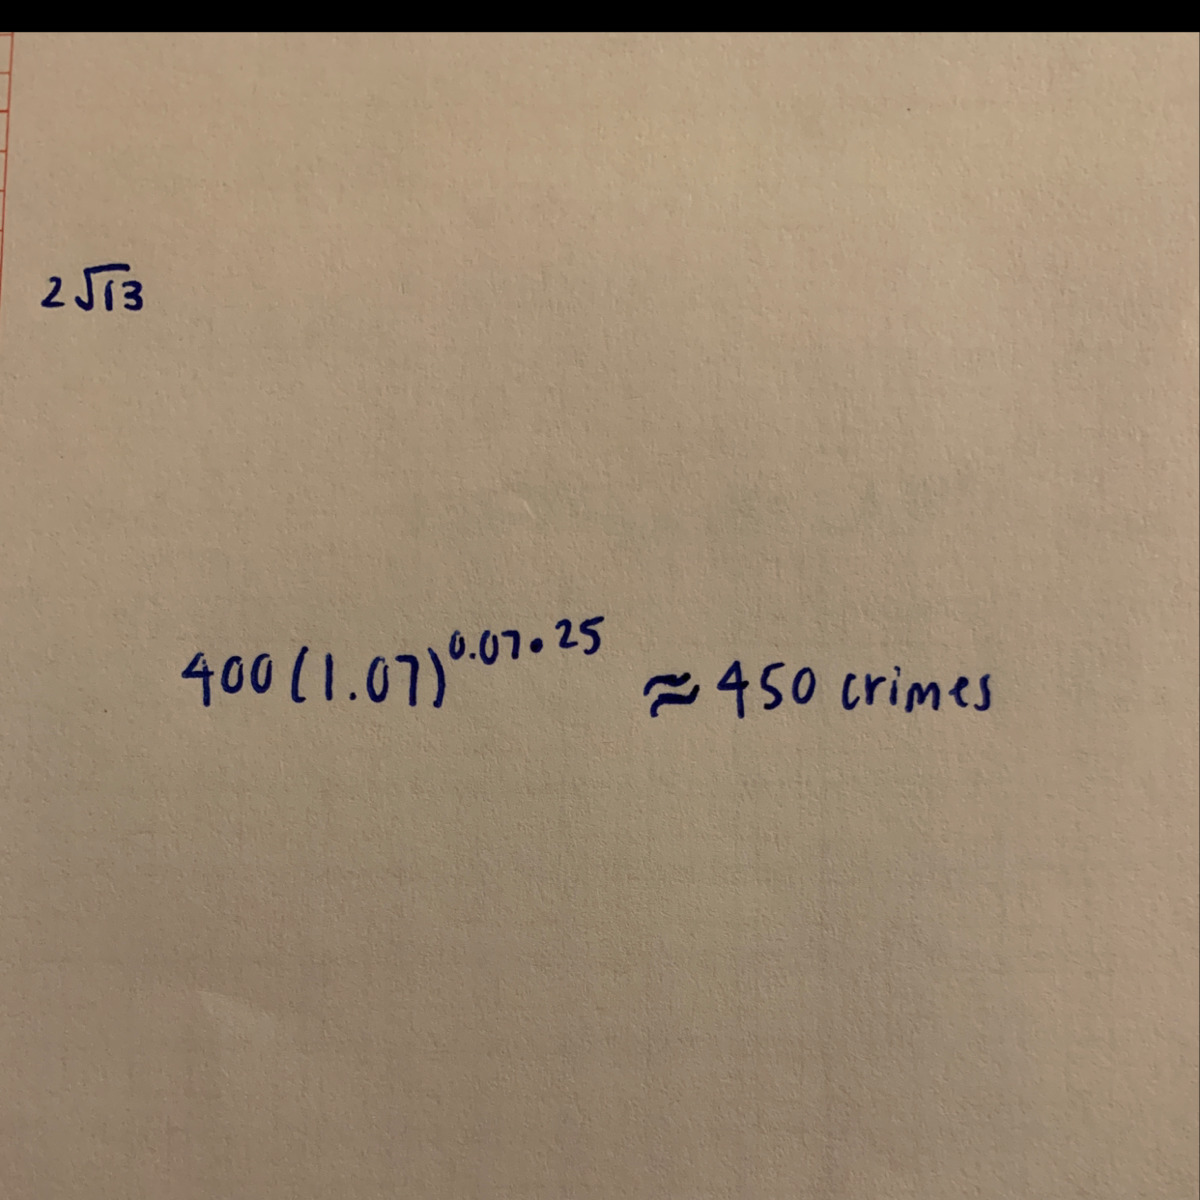 2√13
400(1.07)^0.07•25 ≈ 450 crimes